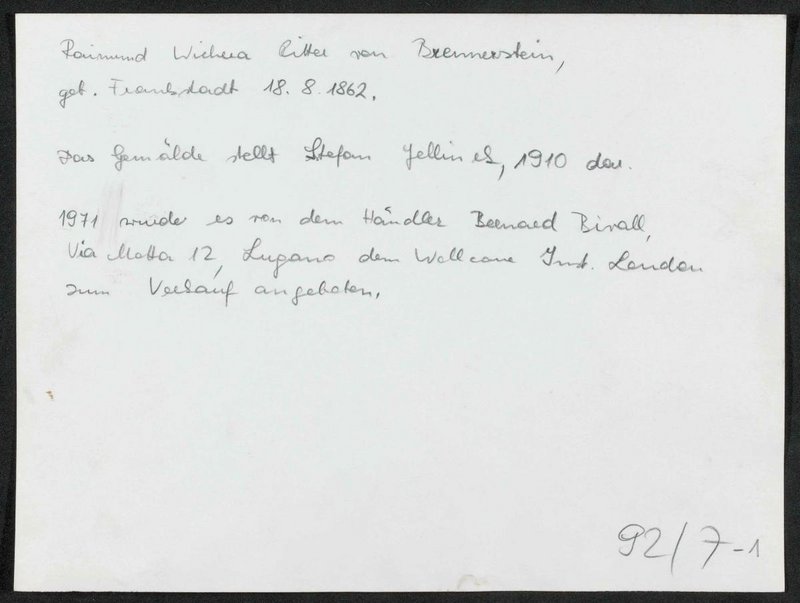 Raimund Wichera Ritter von Brennerstein,
geb. Frankstadt 18. 8. 1862.
Das Gemälde stellt Stefan Jellinek, 1910 dar.
1971 wurde es von dem Händler Bernard Birall,
Via Motta 12, Lugano dem Wellcome Inst. London
zum Verkauf angeboten.
92/7-1